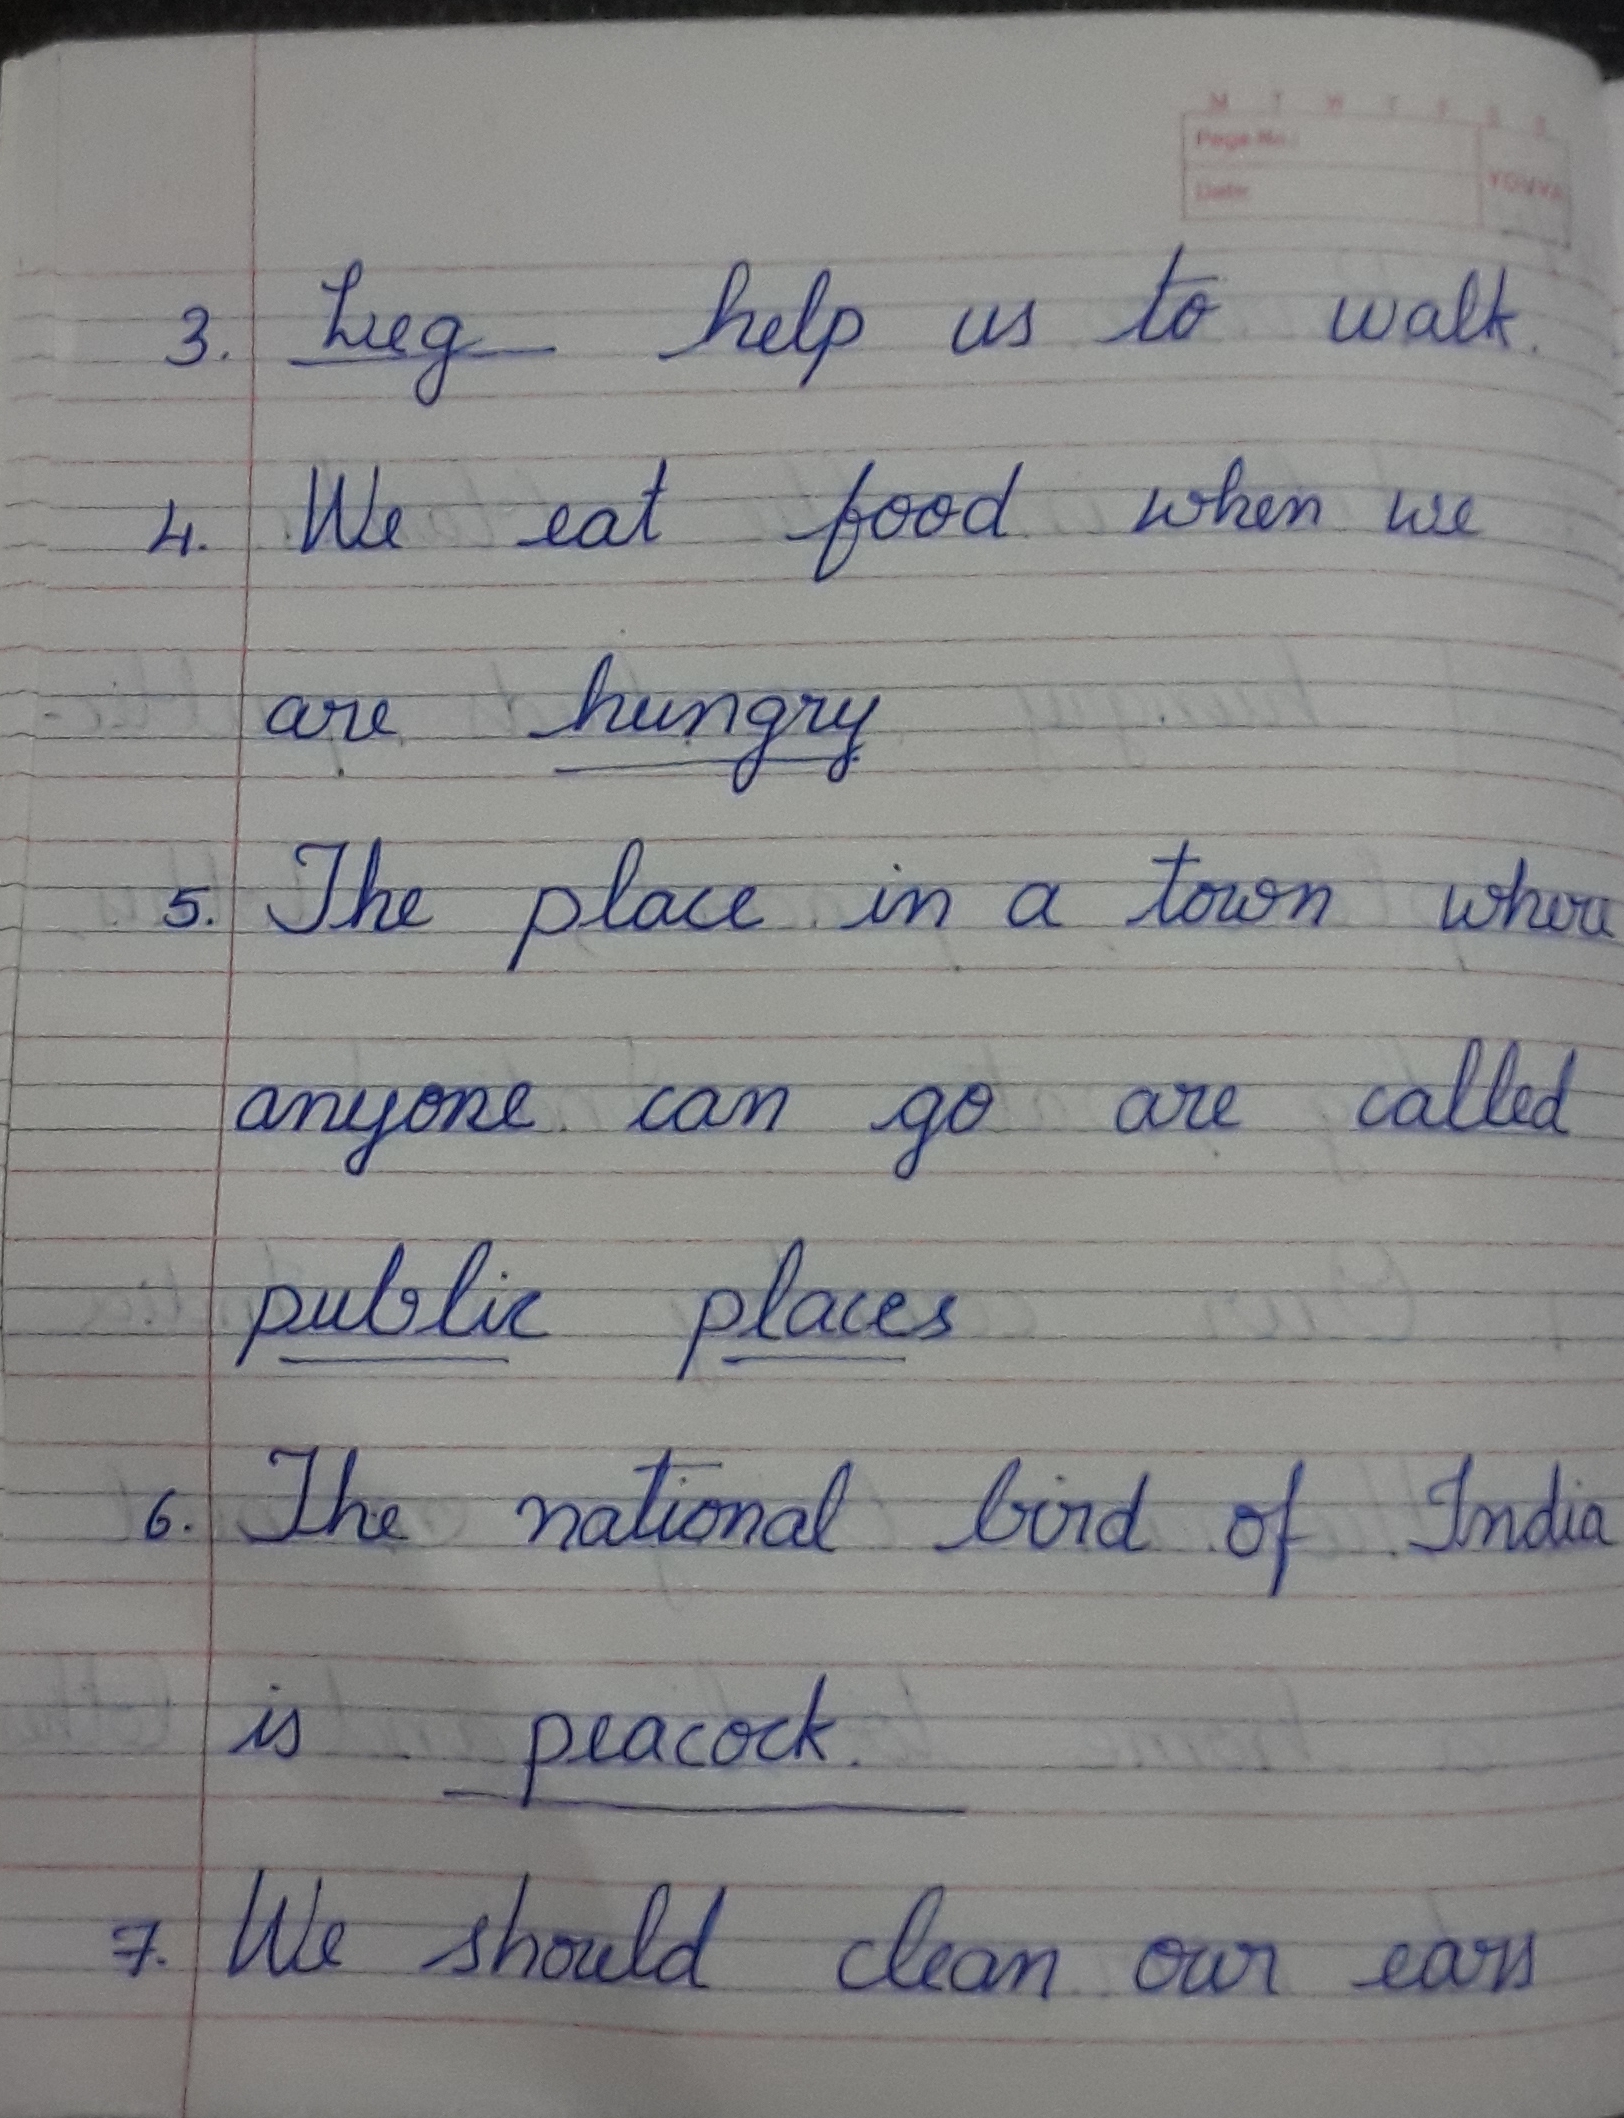 M T W T F S S
Page No.:
Date:
YOUVA
3. Leg help us to walk.
4. We eat food when we
are hungry
5. The place in a town where
anyone can go are called
public places
6. The national bird of India
is peacock.
7. We should clean our ears